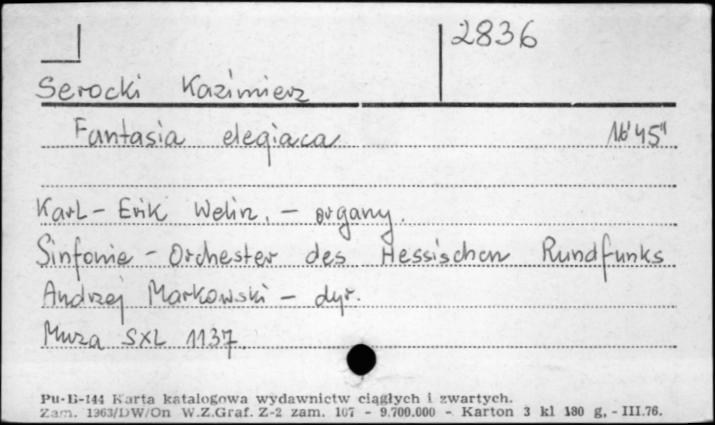 2836
Serocki Kazimierz
Fantasia elegiaca 16'45"
Karl-Erik Welin, - organy.
Sinfonie - Orchester des Hessischen Rundfunks
Andrzej Markowski - dyr.
Muza SXL 1137
Pu-B-144 Karta katalogowa wydawnictw ciągłych i zwartych.
Zam. 1363/DW/On W.Z.Graf. Z-2 zam. 107 - 9.700.000 - Karton 3 kl 180 g, - III.76.